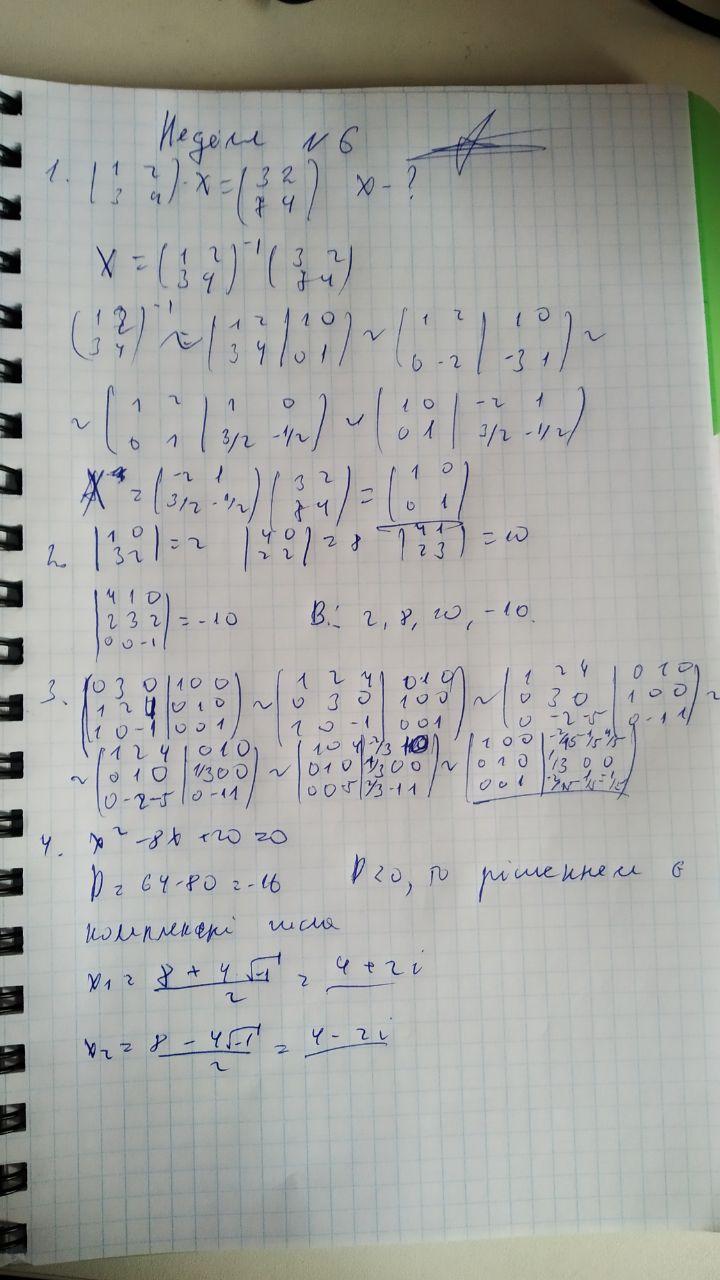 Неділя №6
1. (1 2 3 4) · X = (3 2 7 4) X - ?
X = (1 2 3 4)⁻¹ (3 2 7 4)
(1 2 3 4)⁻¹ ~ (1 2 | 1 0 3 4 | 0 1) ~ (1 2 | 1 0 0 -2 | -3 1) ~
~ (1 2 | 1 0 0 1 | 3/2 -1/2) ~ (1 0 | -2 1 0 1 | 3/2 -1/2)
X = (-2 1 3/2 -1/2) (3 2 7 4) = (1 0 0 1)
2. |1 0 3 2| = 2 |4 0 2 2| = 8 |4 1 2 3| = 10
|4 1 0 2 3 2 0 0 -1| = -10 В.: 2, 8, 10, -10.
3. (0 3 0 | 1 0 0 1 2 4 | 0 1 0 1 0 -1 | 0 0 1) ~ (1 2 4 | 0 1 0 0 3 0 | 1 0 0 1 0 -1 | 0 0 1) ~ (1 2 4 | 0 1 0 0 3 0 | 1 0 0 0 -2 -5 | 0 -1 1) ~
~ (1 2 4 | 0 1 0 0 1 0 | 1/3 0 0 0 -2 -5 | 0 -1 1) ~ (1 0 4 | -2/3 1 0 0 1 0 | 1/3 0 0 0 0 -5 | 2/3 -1 1) ~ (1 0 0 | -2/15 1/5 4/5 0 1 0 | 1/3 0 0 0 0 1 | -2/15 -1/5 -1/5)
4. x² - 8x + 20 = 0
D = 64 - 80 = -16 D < 0, то рішенням є
комплексні числа
x₁ = 8 + 4√-1 / 2 = 4 + 2i
x₂ = 8 - 4√-1 / 2 = 4 - 2i